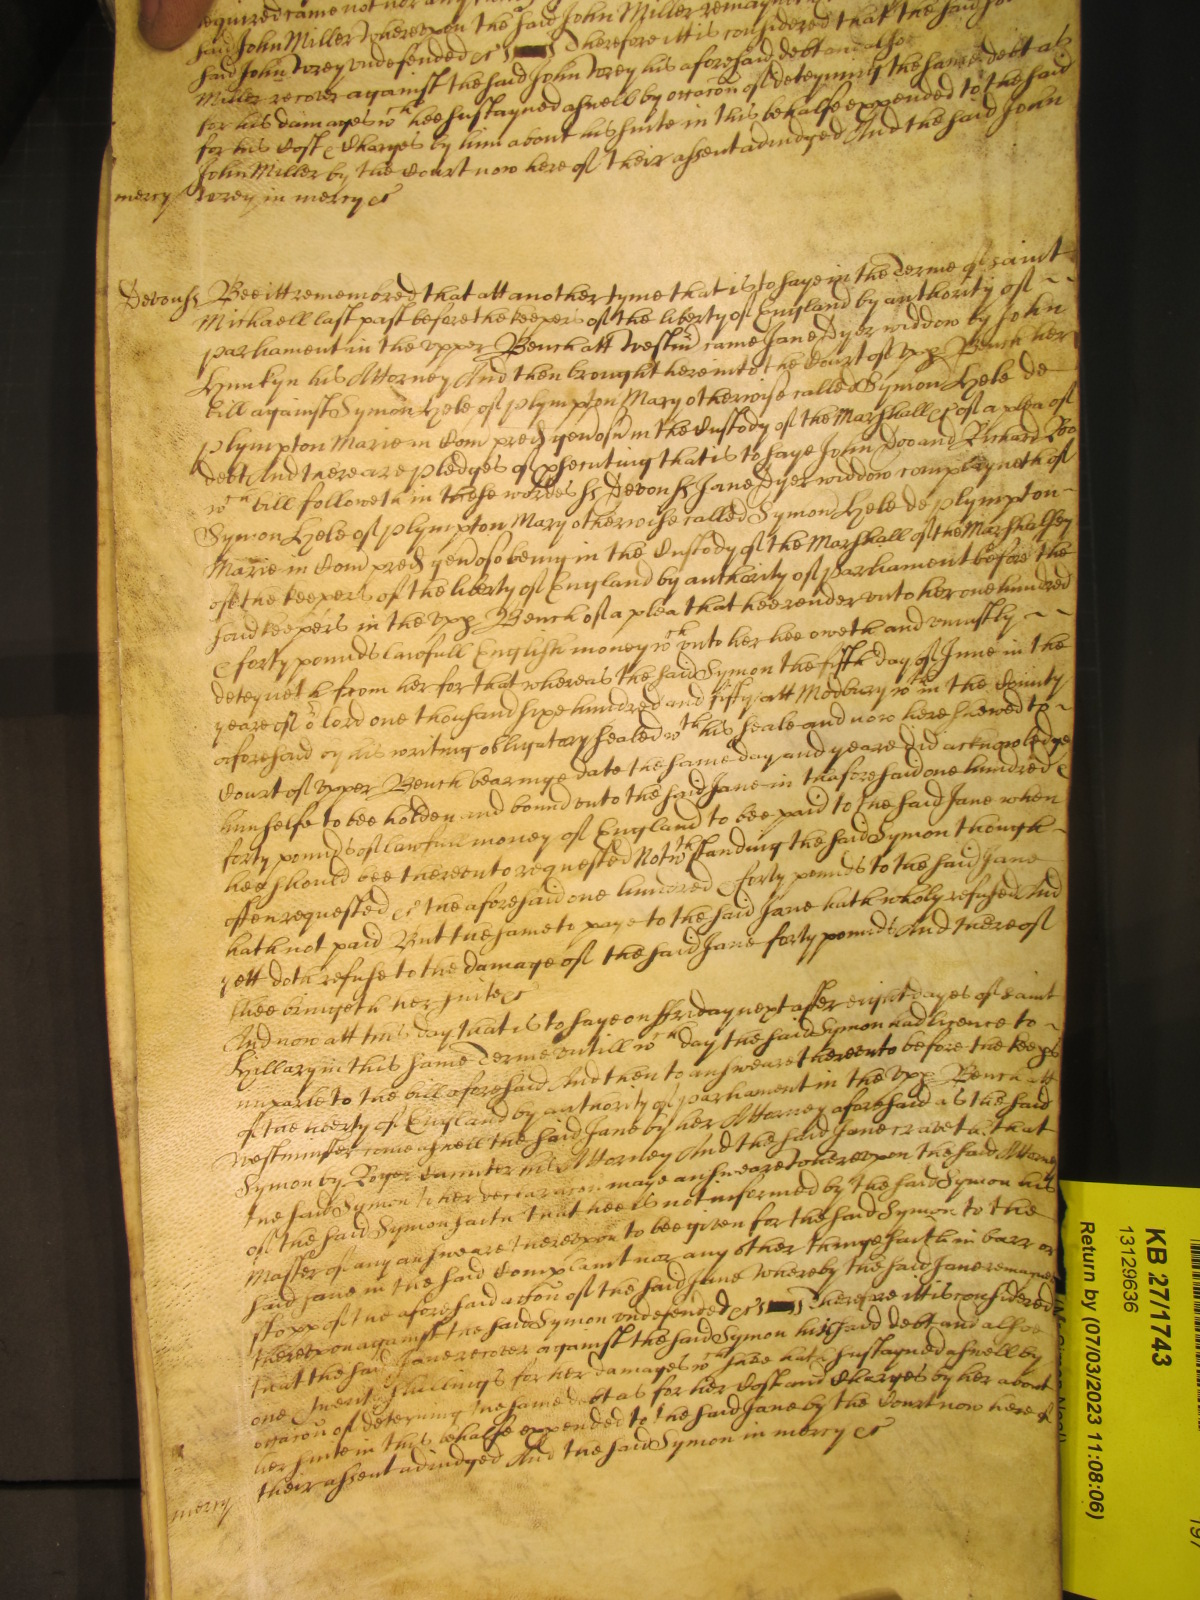 equired came not nor any
said John Miller Whereupon the said John Miller remayn
said John Torey undefended &c Therefore itt is considered that the said Jo
Miller recover against the said John Torey his aforesaid debt and also
for his damages wch hee sustayned aswell by occacon of deteyning the same debt as
for his Cost & Charges by him about his suite in this behalfe expended to the said
John Miller by the Court now here of their assent adiudged And the said John
mercy Torey in mercy &c
Devon ss Bee itt remembred that att another tyme that is to saye in the Terme of Saint
Michaell last past before the keepers of the liberty of England by authority of
parliament in the Upper Bench att Westmr came Jane Dyer widdow by John
Hunkyn his Attorney And then brought here into the Court of Upp Bench her
bill against Symon Hele of Plympton Mary otherwise called Symon Hele de
Plympton Marie in Com pred generos in the Custody of the Marshall &c of a plea of
debt And there are pledges of psecuting that is to saye John Doo and Richard Roo
wch bill followeth in these wordes ss Devon ss Jane Dyer widdow complayneth of
Symon Hele of Plympton Mary otherwise called Symon Hele de Plympton
Marie in Com pred generoso being in the Custody of the Marshall of the Marshalsey
of the keepers of the liberty of England by authority of Parliament before the
said keepers in the Upp Bench of a plea that hee render unto her one hundred
& forty pounds lawfull English money wch unto her hee oweth and uniustly
deteyneth from her for that whereas the said Symon the fifth day of June in the
yeare of or lord one thousand sixe hundred and fifty att Modbury wthin the County
aforesaid by his writing obligatory sealed wth his seale and now here shewed to
Court of Upper Bench bearinge date the same day and yeare did acknowledge
himselfe to bee holden and bound unto the said Jane in thaforesaid one hundred &
forty pounds of lawfull money of England to bee paid to the said Jane when
hee should bee thereunto requested Notwthstanding the said Symon though
often requested &c the aforesaid one hundred & forty pounds to the said Jane
hath not paid But the same to paye to the said Jane hath wholy refused And
yett doth refuse to the damage of the said Jane forty pounds And thereof
shee bringeth her suite &c
And now att this day that is to saye on Friday next after eight dayes of Saint
Hillary in this same Terme untill wch day the said Symon had licence to
imparle to the bill aforesaid And then to answeare thereunto before the keeps
of the liberty of England by authority of parliament in the Upp Bench att
Westminster came aswell the said Jane by her Attorney aforesaid as the said
Symon by Roger his Attorney And the said Jane craveth that
the said Symon to her declaracon maye answeare Whereupon the said Attorney
of the said Symon saith that hee is not informed by the said Symon his
Master of any answeare thereupon to bee given for the said Symon to the
said Jane in the said Complaint nor any other thinge saith in barr or
stopp of the aforesaid accon of the said Jane whereby the said Jane remaynes
thereupon against the said Symon undefended &c Therefore itt is considered
that the said Jane recover against the said Symon his said debt and alsoe
one & twenty shillings for her damages wch shee hath sustayned aswell by
occacon of deteyning the same debt as for her Cost and Charges by her about
her suite in this behalfe expended to the said Jane by the Court now here of
their assent adiudged And the said Symon in mercy &c
mercy
KB 27/1743
13129636
Return by (07/03/2023 11:08:06)
197